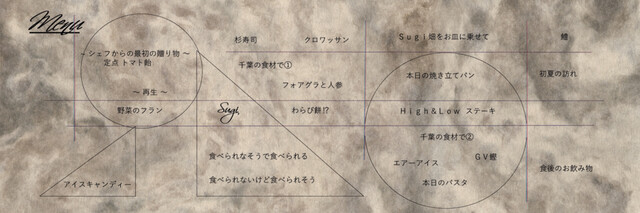 Menu
~ シェフからの最初の贈り物 ~
定点 トマト飴
~ 再生 ~
野菜のフラン
アイスキャンディー
杉寿司
クロワッサン
千葉の食材で①
フォアグラと人参
Sugi
わらび餅!?
食べられなそうで食べられる
食べられないけど食べられそう
Sugi畑をお皿に乗せて
本日の焼き立てパン
High&Low ステーキ
千葉の食材で②
エアーアイス
GV鰹
本日のパスタ
鱧
初夏の訪れ
食後のお飲み物